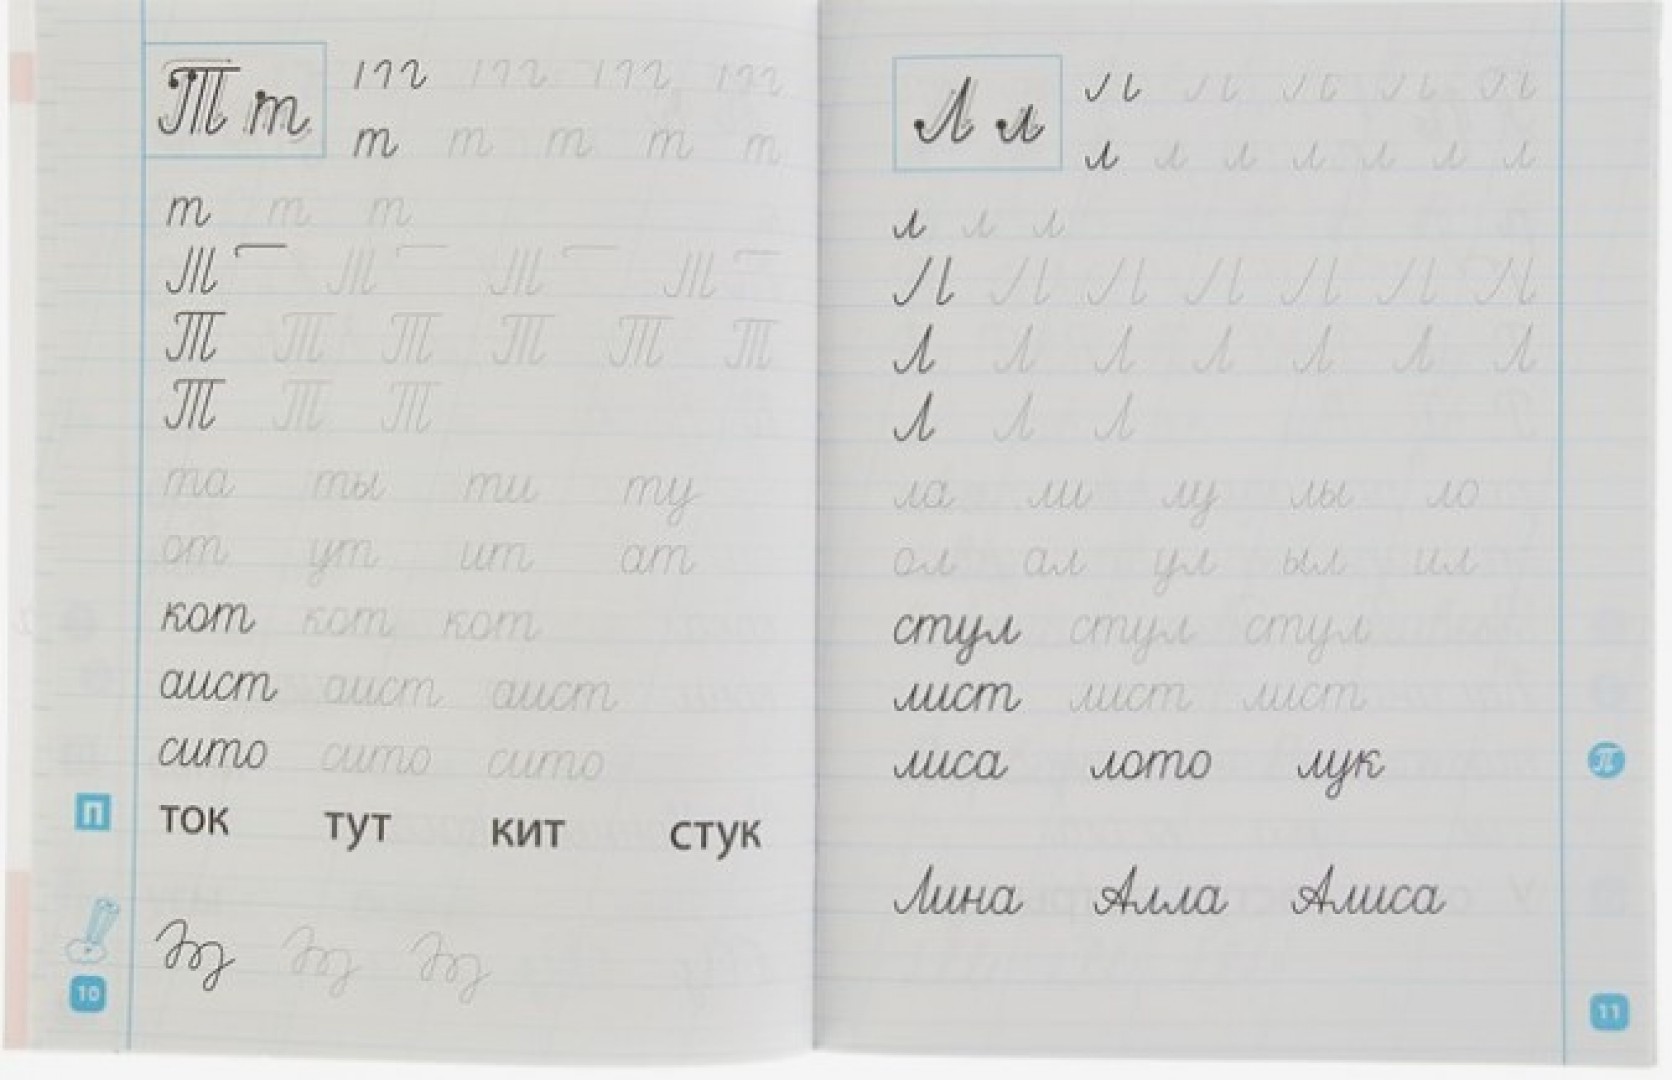 Т т
т т т т т
т т т
Т Т Т Т Т Т
Т Т Т
та ты ти ту
от ут ит ат
кот кот кот
аист аист аист
сито сито сито
П ток тут кит стук
10
Л л
л л л л л л л
л л л
Л Л Л Л Л Л Л
Л Л Л
ла ли лу лы ло
ол ал ул ыл ил
стул стул стул
лист лист лист
лиса лото лук П
Лина Алла Алиса
11